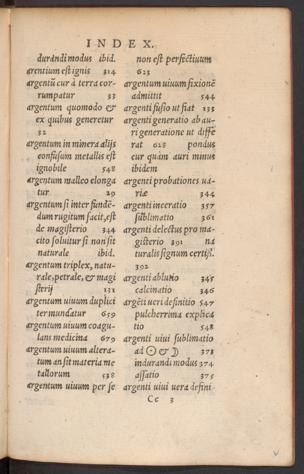 INDEX.
durandi modus ibid.
arentium est ignis 314
argentū cur à terra cor-
rumpatur 33
argentum quomodo &
ex quibus generetur
32
argentum in minera alijs
confusum metallis est
ignobile 548
argentum malleo elonga
tur 29
argentum si inter fundē-
dum rugitum facit, est
de magisterio 344
cito soluitur si non sit
naturale ibid.
argentum triplex, natu-
rale, petrale, & magi
sterij 131
argentum uiuum duplici
ter mundatur 659
argentum uiuum coagu-
lans medicina 679
argentum uiuum altera-
tum an sit materia me
tallorum 538
argentum uiuum per se
non est perfectiuum
623
argentum uiuum fixionē
admittit 544
argenti fusio ut fiat 133
argenti generatio ab au-
ri generatione ut diffe
rat 628 pondus
cur quàm auri minus
ibidem
argenti probationes ua-
riæ 344
argenti inceratio 357
sublimatio 361
argenti delectus pro ma-
gisterio 391 na
turalis signum certiss.
392
argenti ablutio 345
calcinatio 346
argēti ucri definitio 547
pulcherrima explica
tio 548
argenti uiui sublimatio
ad ☉ & ☽ 373
indurandi modus 374
assatio 375
argenti uiui uera defini-
Cc 3